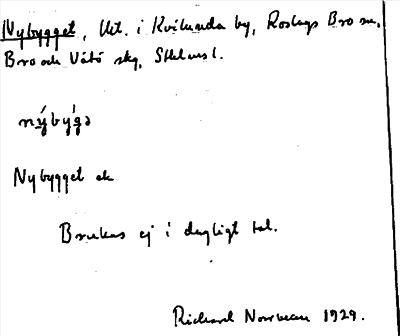 Nybygget, Ut. i Kvilunda by, Roslags Bro sn,
Bro och Vätö skg, Sthlms l.
nýbýgə
Nybygget ek
Brukas ej i dagligt tal.
Richard Norrman 1929.